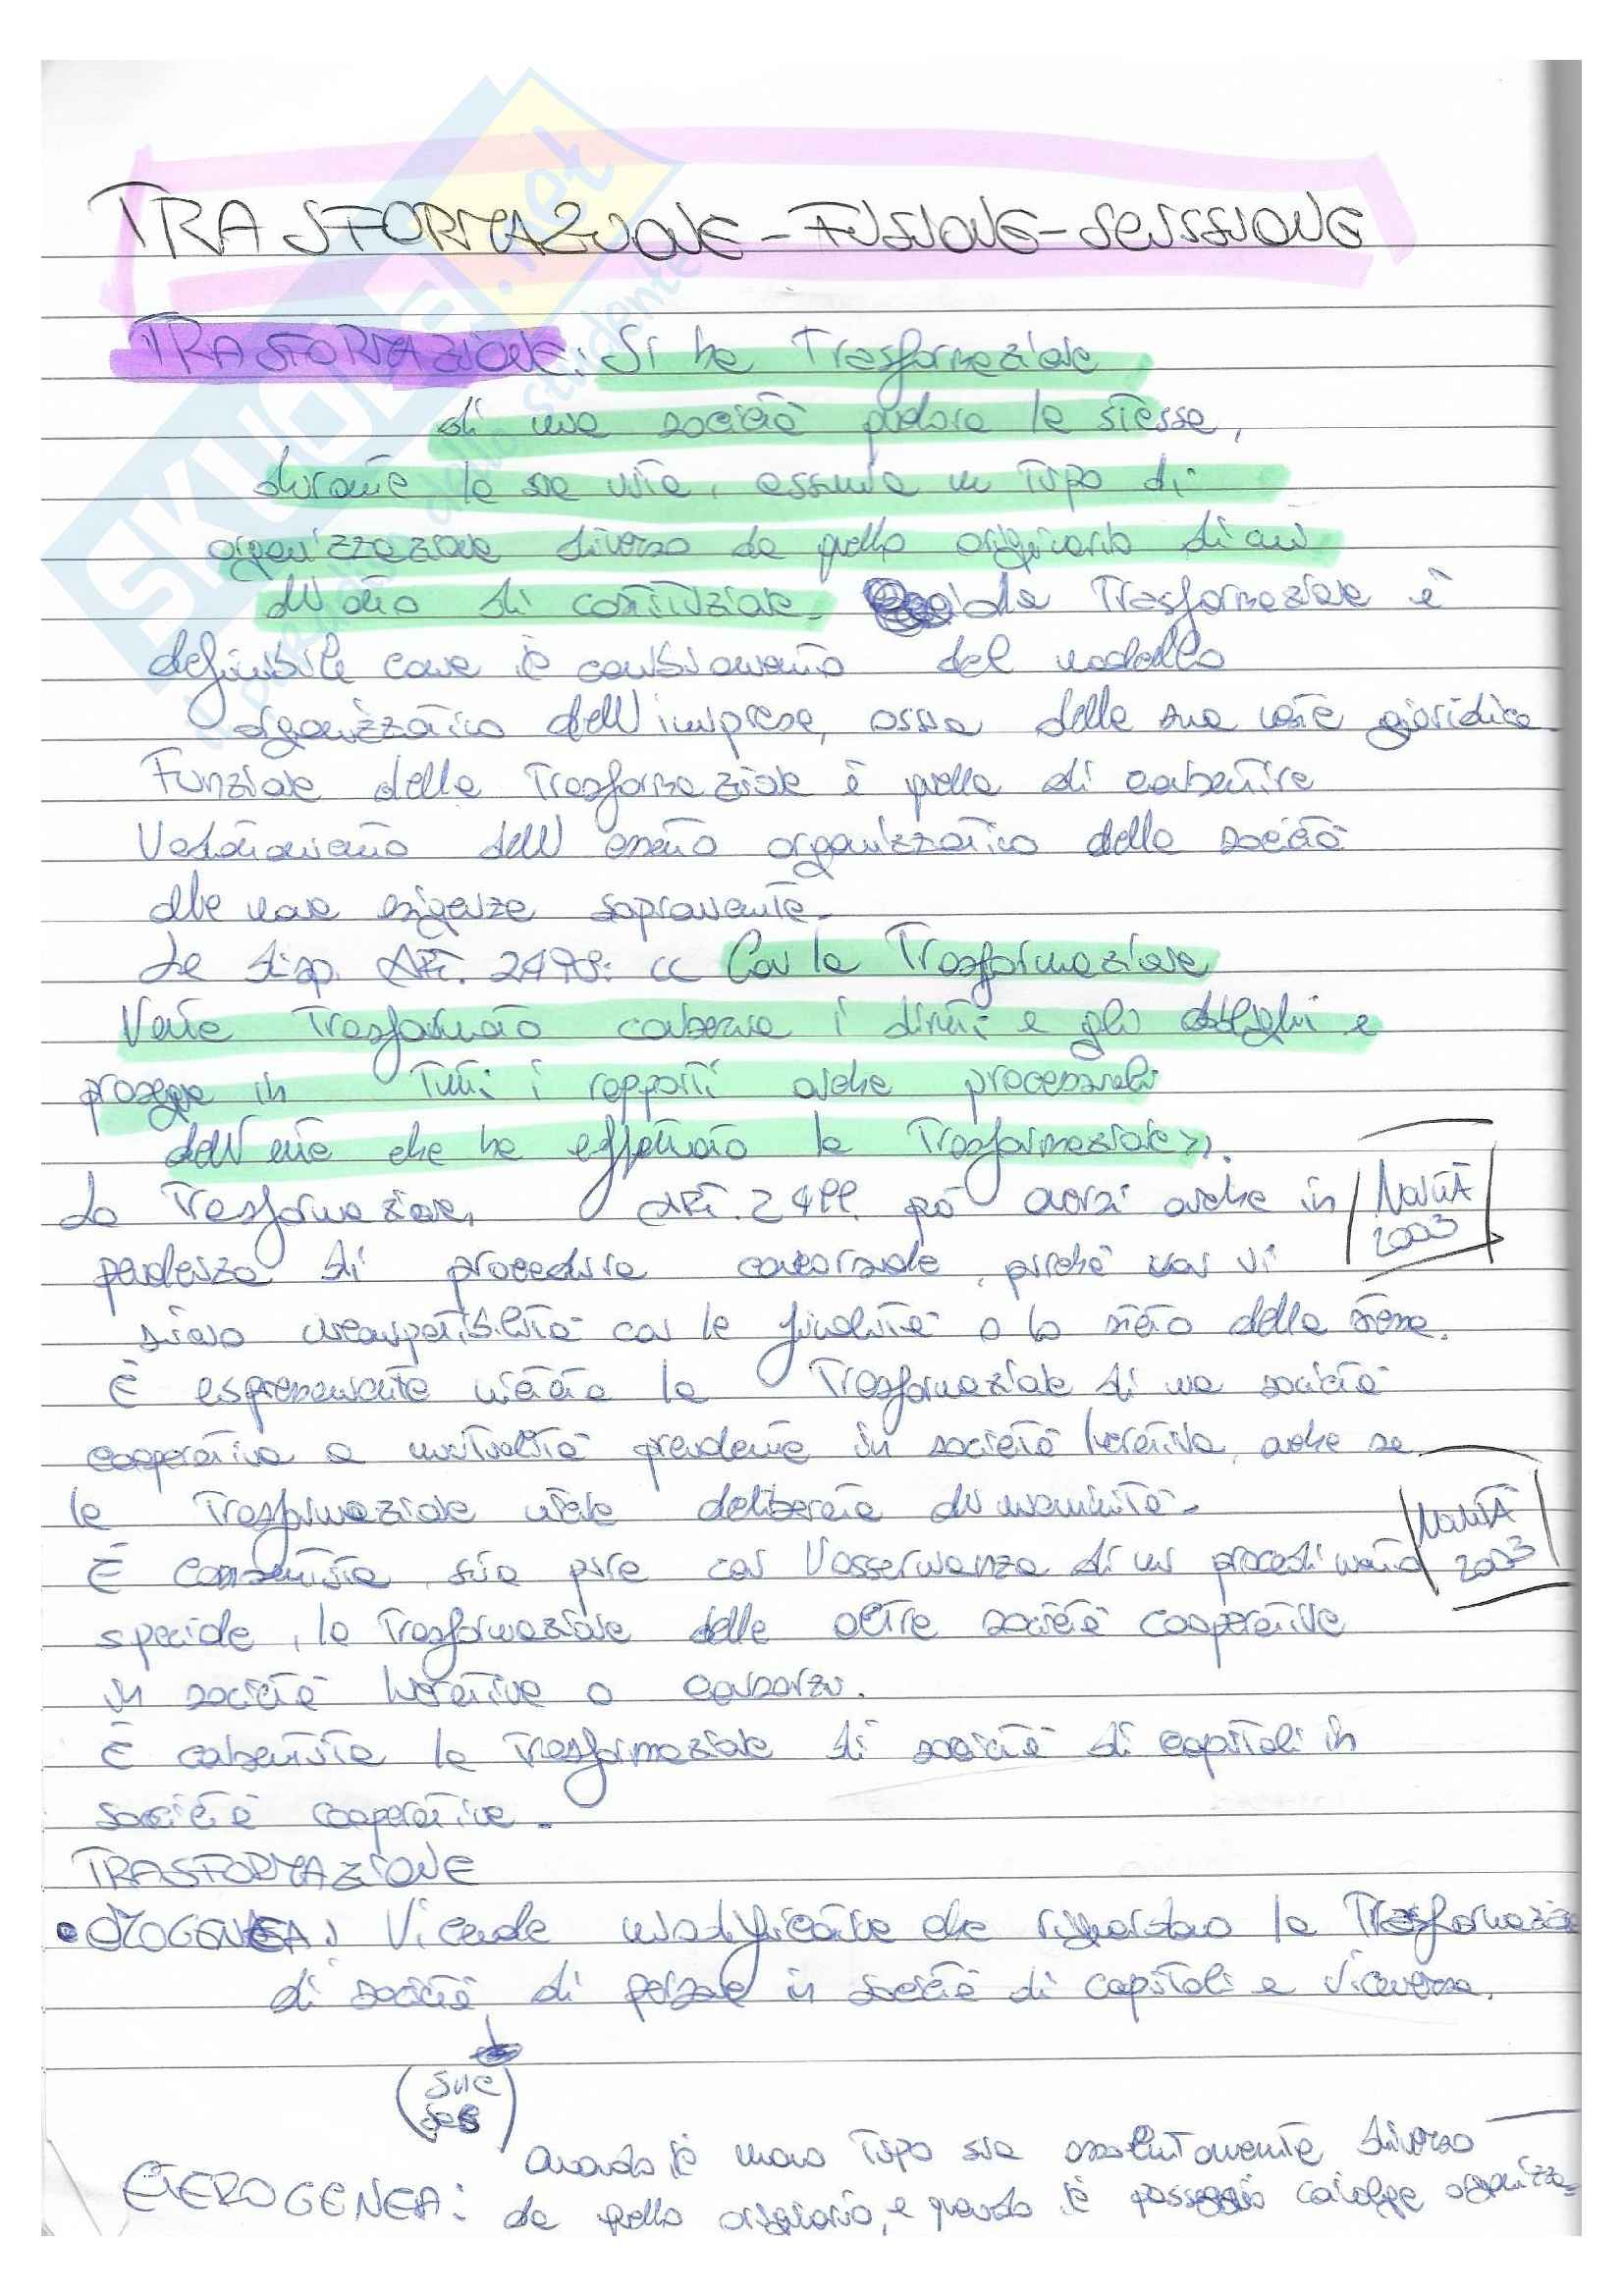 TRASFORMAZIONE - FUSIONE - SCISSIONE
TRASFORMAZIONE: Si ha Trasformazione
di una società quando la stessa,
durante la sua vita, assume un Tipo di
organizzazione diverso da quello originario di cui
all'atto di costituzione. La Trasformazione è
definibile come il cambiamento del modello
organizzativo dell'impresa, ossia della sua veste giuridica
Funzione della Trasformazione è quella di consentire
l'adattamento dell'assetto organizzativo della società
alle nuove esigenze sopravvenute.
La disp. ART. 2498: << Con la Trasformazione
l'ente Trasformato conserva i diritti e gli obblighi e
prosegue in Tutti i rapporti anche processuali
dell'ente che ha effettuato la Trasformazione>>.
La Trasformazione, ART. 2499, può aversi anche in
NOVITÀ
2003
pendenza di procedura concorsuale, purchè non vi
siano incompatibilità con le finalità o lo stato della stessa.
È espressamente vietata la Trasformazione di una società
cooperativa a mutualità prevalente in società lucrativa, anche se
la Trasformazione viene deliberata all'unanimità.
NOVITÀ
2003
È consentita, sia pure con l'osservanza di un procedimento
speciale, la Trasformazione delle altre società cooperative
in società lucrative o consorzi.
È consentita la Trasformazione di società di capitali in
società cooperative.
TRASFORMAZIONE
• OMOGENEA: Vicende modificative che riguardano la Trasformazione
di società di persone in società di capitali e viceversa.
(snc
sas)
Quando il nuovo Tipo sia assolutamente diverso
ETEROGENEA: da quello originario, e quando il passaggio coinvolge organizza-
SKUOLA.net